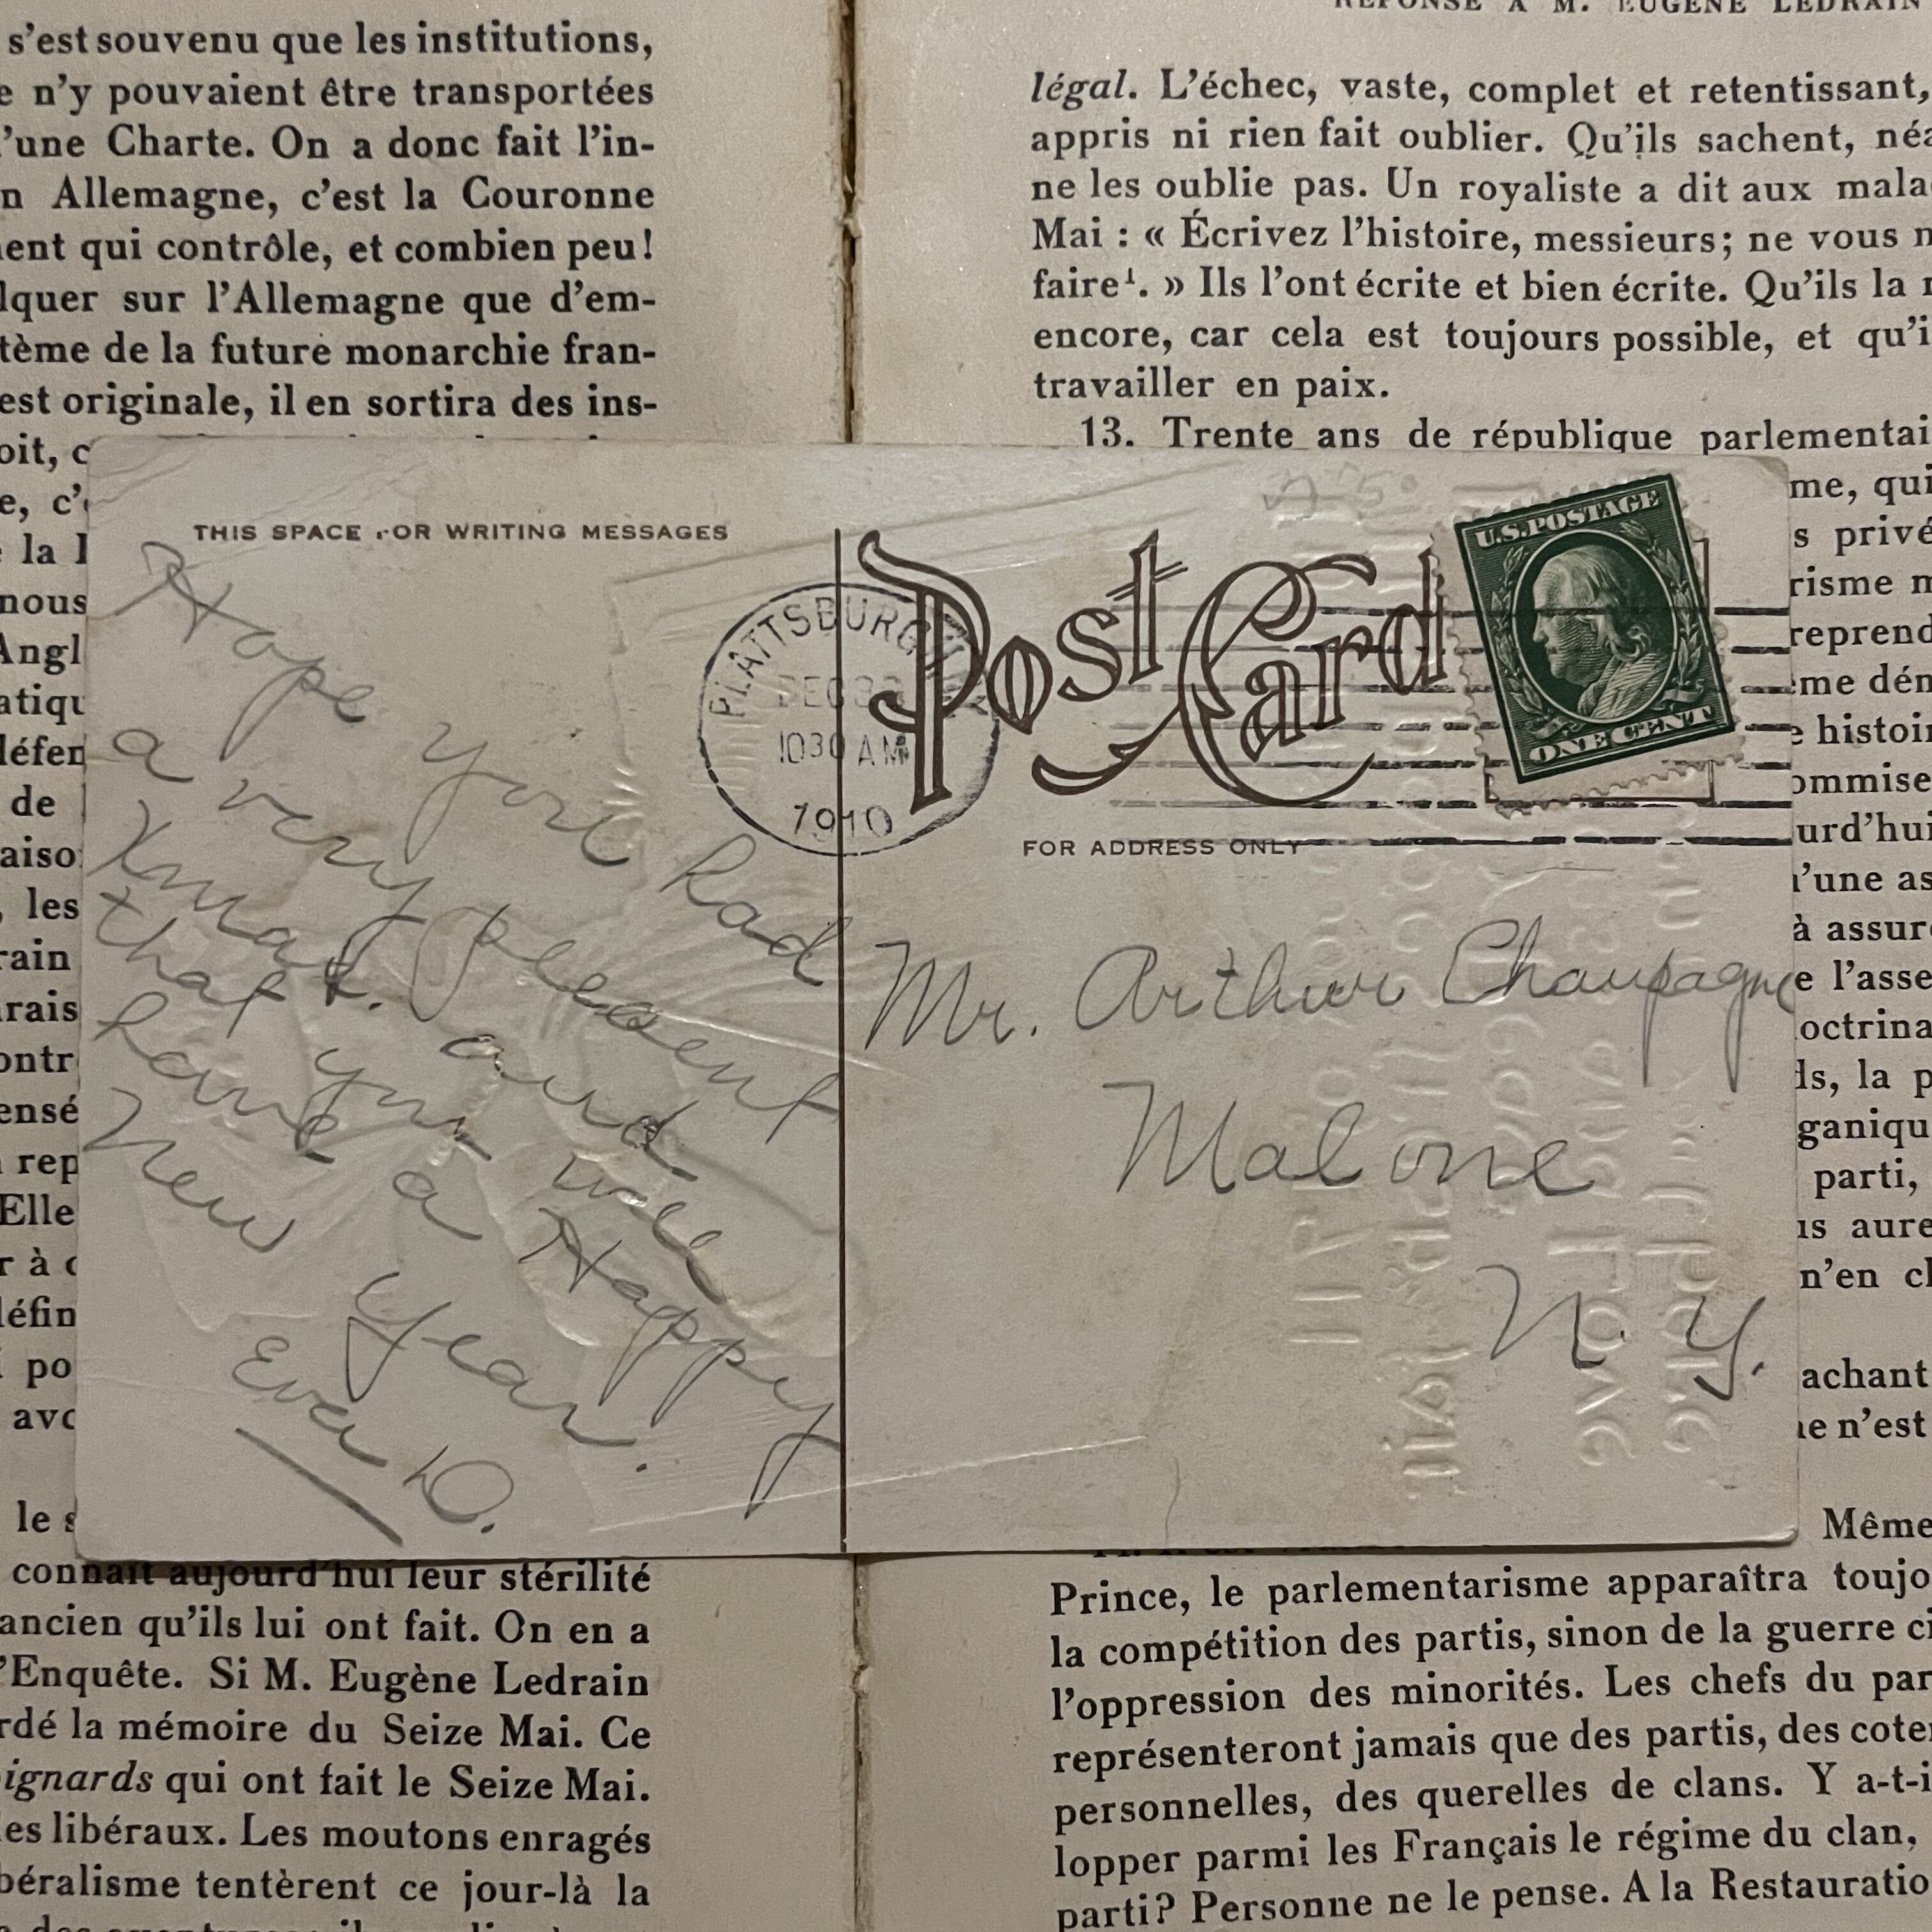 s'est souvenu que les institutions,
e n'y pouvaient être transportées
'une Charte. On a donc fait l'in-
n Allemagne, c'est la Couronne
ent qui contrôle, et combien peu!
lquer sur l'Allemagne que d'em-
tème de la future monarchie fran-
est originale, il en sortira des ins-
oit, c
e, c'
la
nous
Angl
atiqu
défen
de
aiso
, les
rain
rais
ontr
ensé
rep
Elle
r à c
défin
po
avo
le s
connaît aujourd'hui leur stérilité
ancien qu'ils lui ont fait. On en a
'Enquête. Si M. Eugène Ledrain
rdé la mémoire du Seize Mai. Ce
ignards qui ont fait le Seize Mai.
les libéraux. Les moutons enragés
béralisme tentèrent ce jour-là la
RÉPONSE A M. EUGÈNE LEDRAIN
légal. L'échec, vaste, complet et retentissant,
appris ni rien fait oublier. Qu'ils sachent, néa
ne les oublie pas. Un royaliste a dit aux mala
Mai : « Écrivez l'histoire, messieurs; ne vous m
faire¹. » Ils l'ont écrite et bien écrite. Qu'ils la
encore, car cela est toujours possible, et qu'i
travailler en paix.
13. Trente ans de république parlementai
me, qui
s privé
risme
reprend
me dém
histoir
ommise
urd'hui
'une as
à assur
e l'asse
octrina
ls, la p
ganiqu
parti,
us aure
n'en c
achant
e n'est
Même
Prince, le parlementarisme apparaîtra toujo
la compétition des partis, sinon de la guerre ci
l'oppression des minorités. Les chefs du par
représenteront jamais que des partis, des coter
personnelles, des querelles de clans. Y a-t-i
lopper parmi les Français le régime du clan,
parti? Personne ne le pense. A la Restauratio
THIS SPACE FOR WRITING MESSAGES
Hope you had
a very pleasent
Xmas. and
that you will
have a Happy
New Year.
Eva D.
PLATTSBURGH
DEC
1030 AM
1910
Post Card
U.S. POSTAGE
ONE CENT
FOR ADDRESS ONLY
Mr. Arthur Champagne
Malone
N. Y.